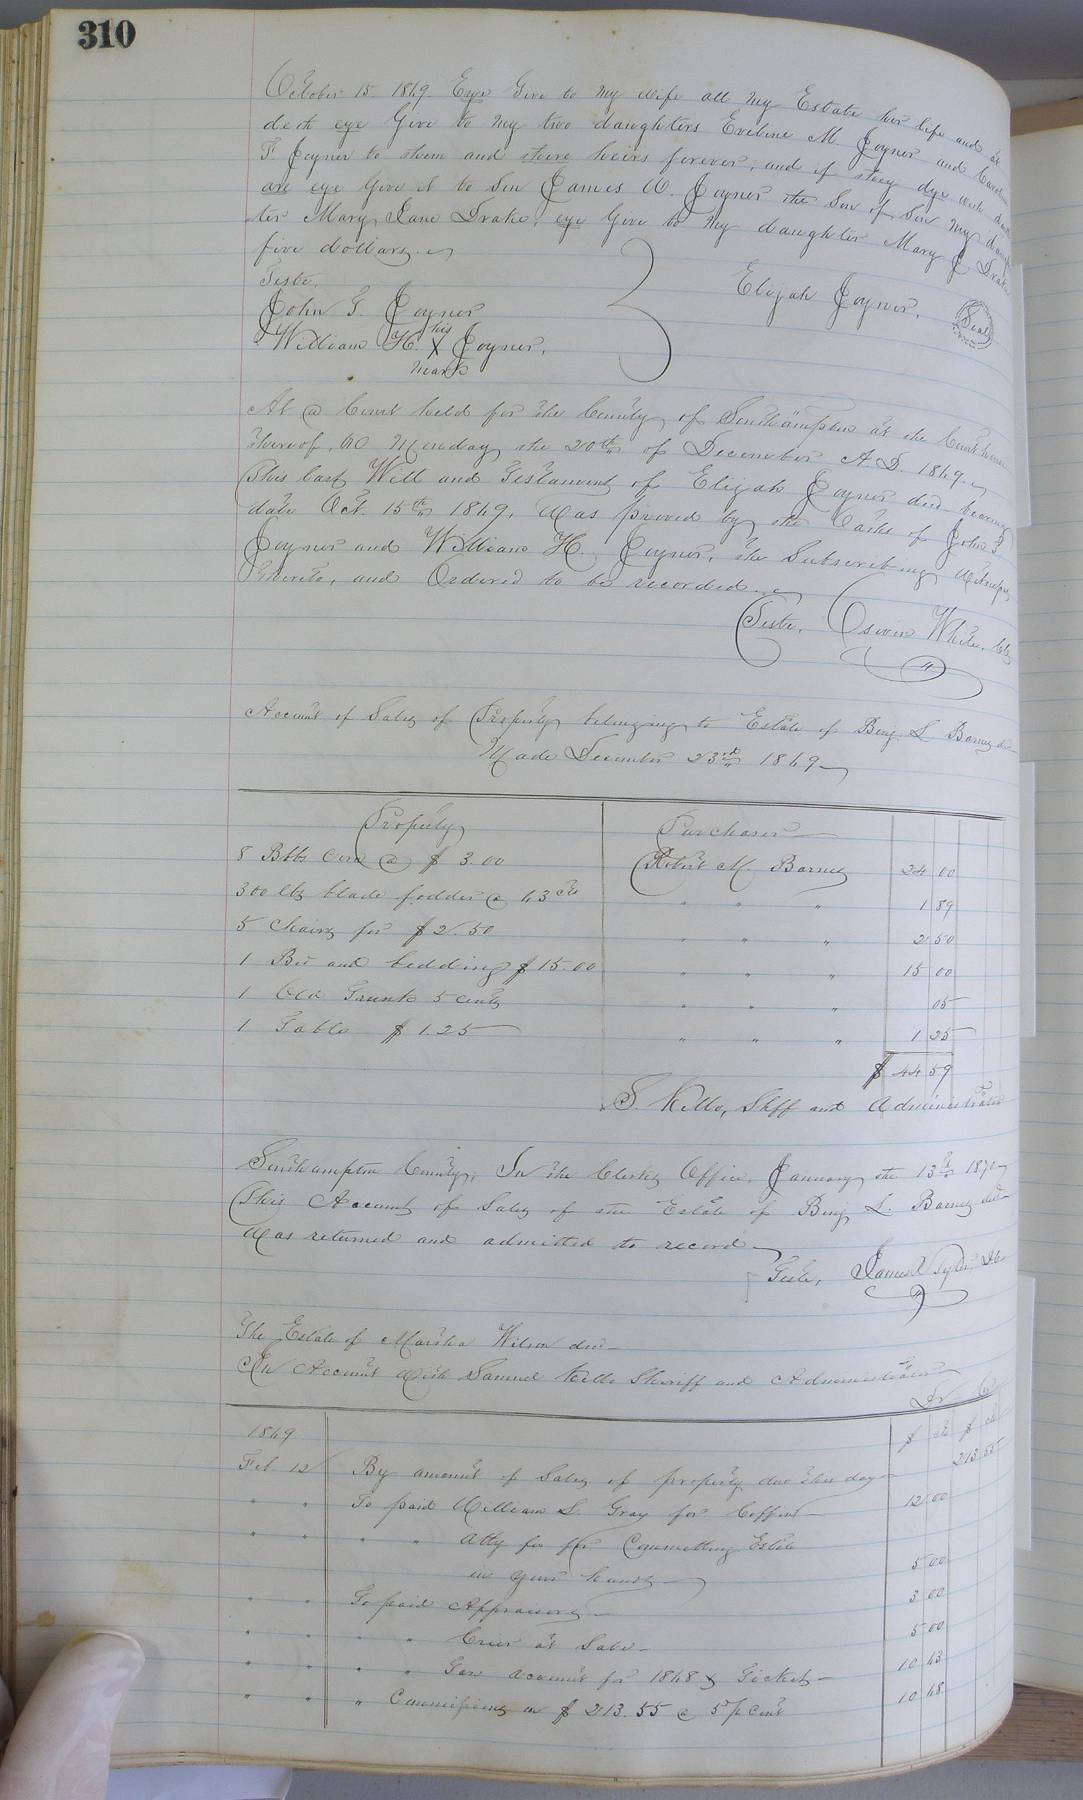 310
October 15 1869 Eye Give to my wife all my Estate her life and at
deth eye Give to my two daughters Eveline M. Joyner and
F. Joyner to them and there heirs forever, and if they dye with
are eye Give it to Sin James W. Joyner the Son of Sin my daugh
ter Mary Jane Drake, eye Give to my daughter Mary J Drake
five dollars.
Teste.
Elijah Joyner. Seal
John G. Joyner
William H. his X mark Joyner.
At a Court held for the County of Southampton at the Courthouse
thereof, on Monday the 20th of December A.D. 1869.
This last Will and Testament of Elijah Joyner decd bearing
date Oct. 15th 1869, was proved by the Oaths of John G
Joyner and William H. Joyner, the Subscribing Witnesses
thereto, and Ordered to be recorded.
Teste, White, Clk
Account of Sales of Property belonging to Estate of Benj. L Barnes decd
Made December 23rd 1869
Property Purchaser
8 Bbls Corn @ $ 3.00 Robert M. Barnes 24 00
300 lbs blade fodder @ 63 cts " " " 1 89
5 Chairs for $2.50 " " " 2 50
1 Bed and bedding $15.00 " " " 15 00
1 Old Trunk 5 cents " " " 05
1 Table $1.25 " " " 1 25
$ 44 59
S. Kello, Shff and Administrator
Southampton County, In the Clerks Office, January the 13th 1870
This Account of Sales of the Estate of Benj. L. Barnes decd
Was returned and admitted to record
Teste, James
The Estate of Martha Wilson decd
In Account With Samuel Kello Sheriff and Administrator
Dr Cr
1869 $ cts $ cts
Feb 12 By amount of Sales of property due this day 213 55
" " To paid William S. Gray for Coffin 12 00
" " " " Atty fee for Committing Estate
in your hands 5 00
" " To paid Appraisers 3 00
" " " " Crier at Sale 5 00
" " " " account for 1868 & Tickets 10 63
" " " Commissions on $ 213.55 @ 5 p cent 10 68